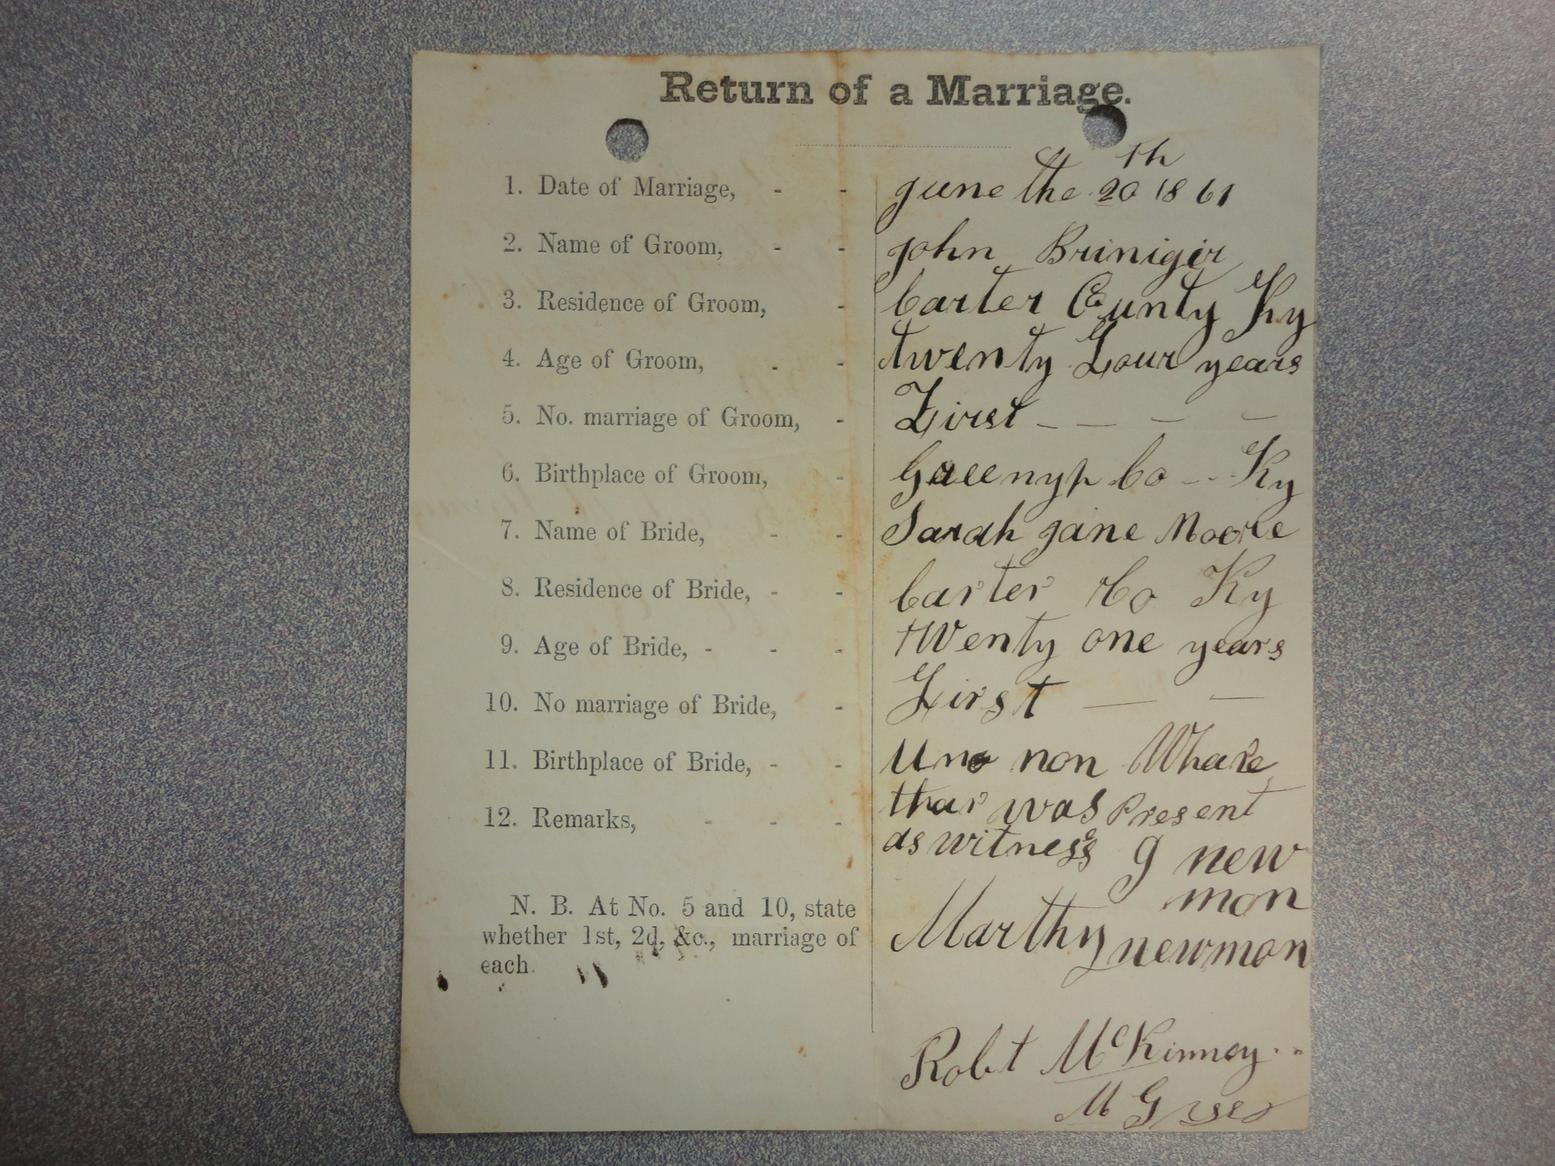 Return of a Marriage.
1. Date of Marriage, - - june the 20th 1861
2. Name of Groom, - - john Briniger
3. Residence of Groom, - Carter County Ky
4. Age of Groom, - - twenty Four years
5. No. marriage of Groom, - First - - - -
6. Birthplace of Groom, - Greenup Co -- Ky
7. Name of Bride, - - Sarah jane Moore
8. Residence of Bride, - - Carter Co Ky
9. Age of Bride, - - - tWenty one years
10. No marriage of Bride, - First - -
11. Birthplace of Bride, - - Un non Whare
12. Remarks, - - - thar was Present
as witness J new
mon
Marthy newmon
N. B. At No. 5 and 10, state
whether 1st, 2d, &c., marriage of
each.
Robt McKinney
M G